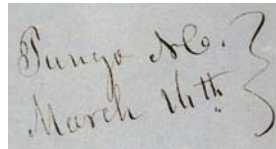 Pungo N.C.
March 14th